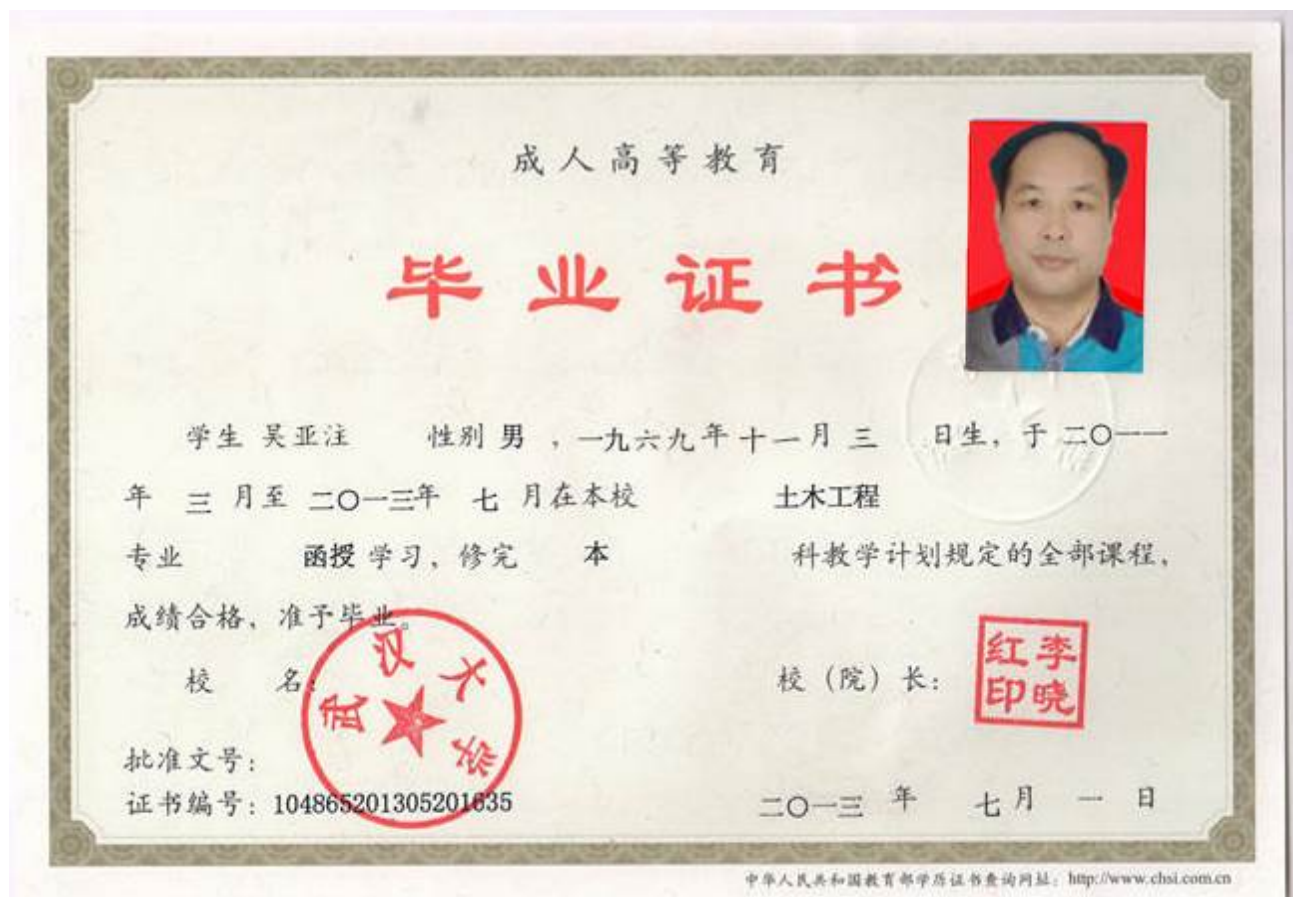 成人高等教育
毕业证书
学生 吴亚注 性别 男 , 一九六九年十一月 三 日生, 于 二〇一一
年 三 月至 二〇一三年 七 月在本校 土木工程
专业 函授 学习, 修完 本 科教学计划规定的全部课程,
成绩合格, 准予毕业。
校 名: 武汉大学 校 (院) 长: 李晓红印
批准文号:
证书编号: 104865201305201635 二〇一三 年 七 月 一 日
中华人民共和国教育部学历证书查询网址: http://www.chsi.com.cn